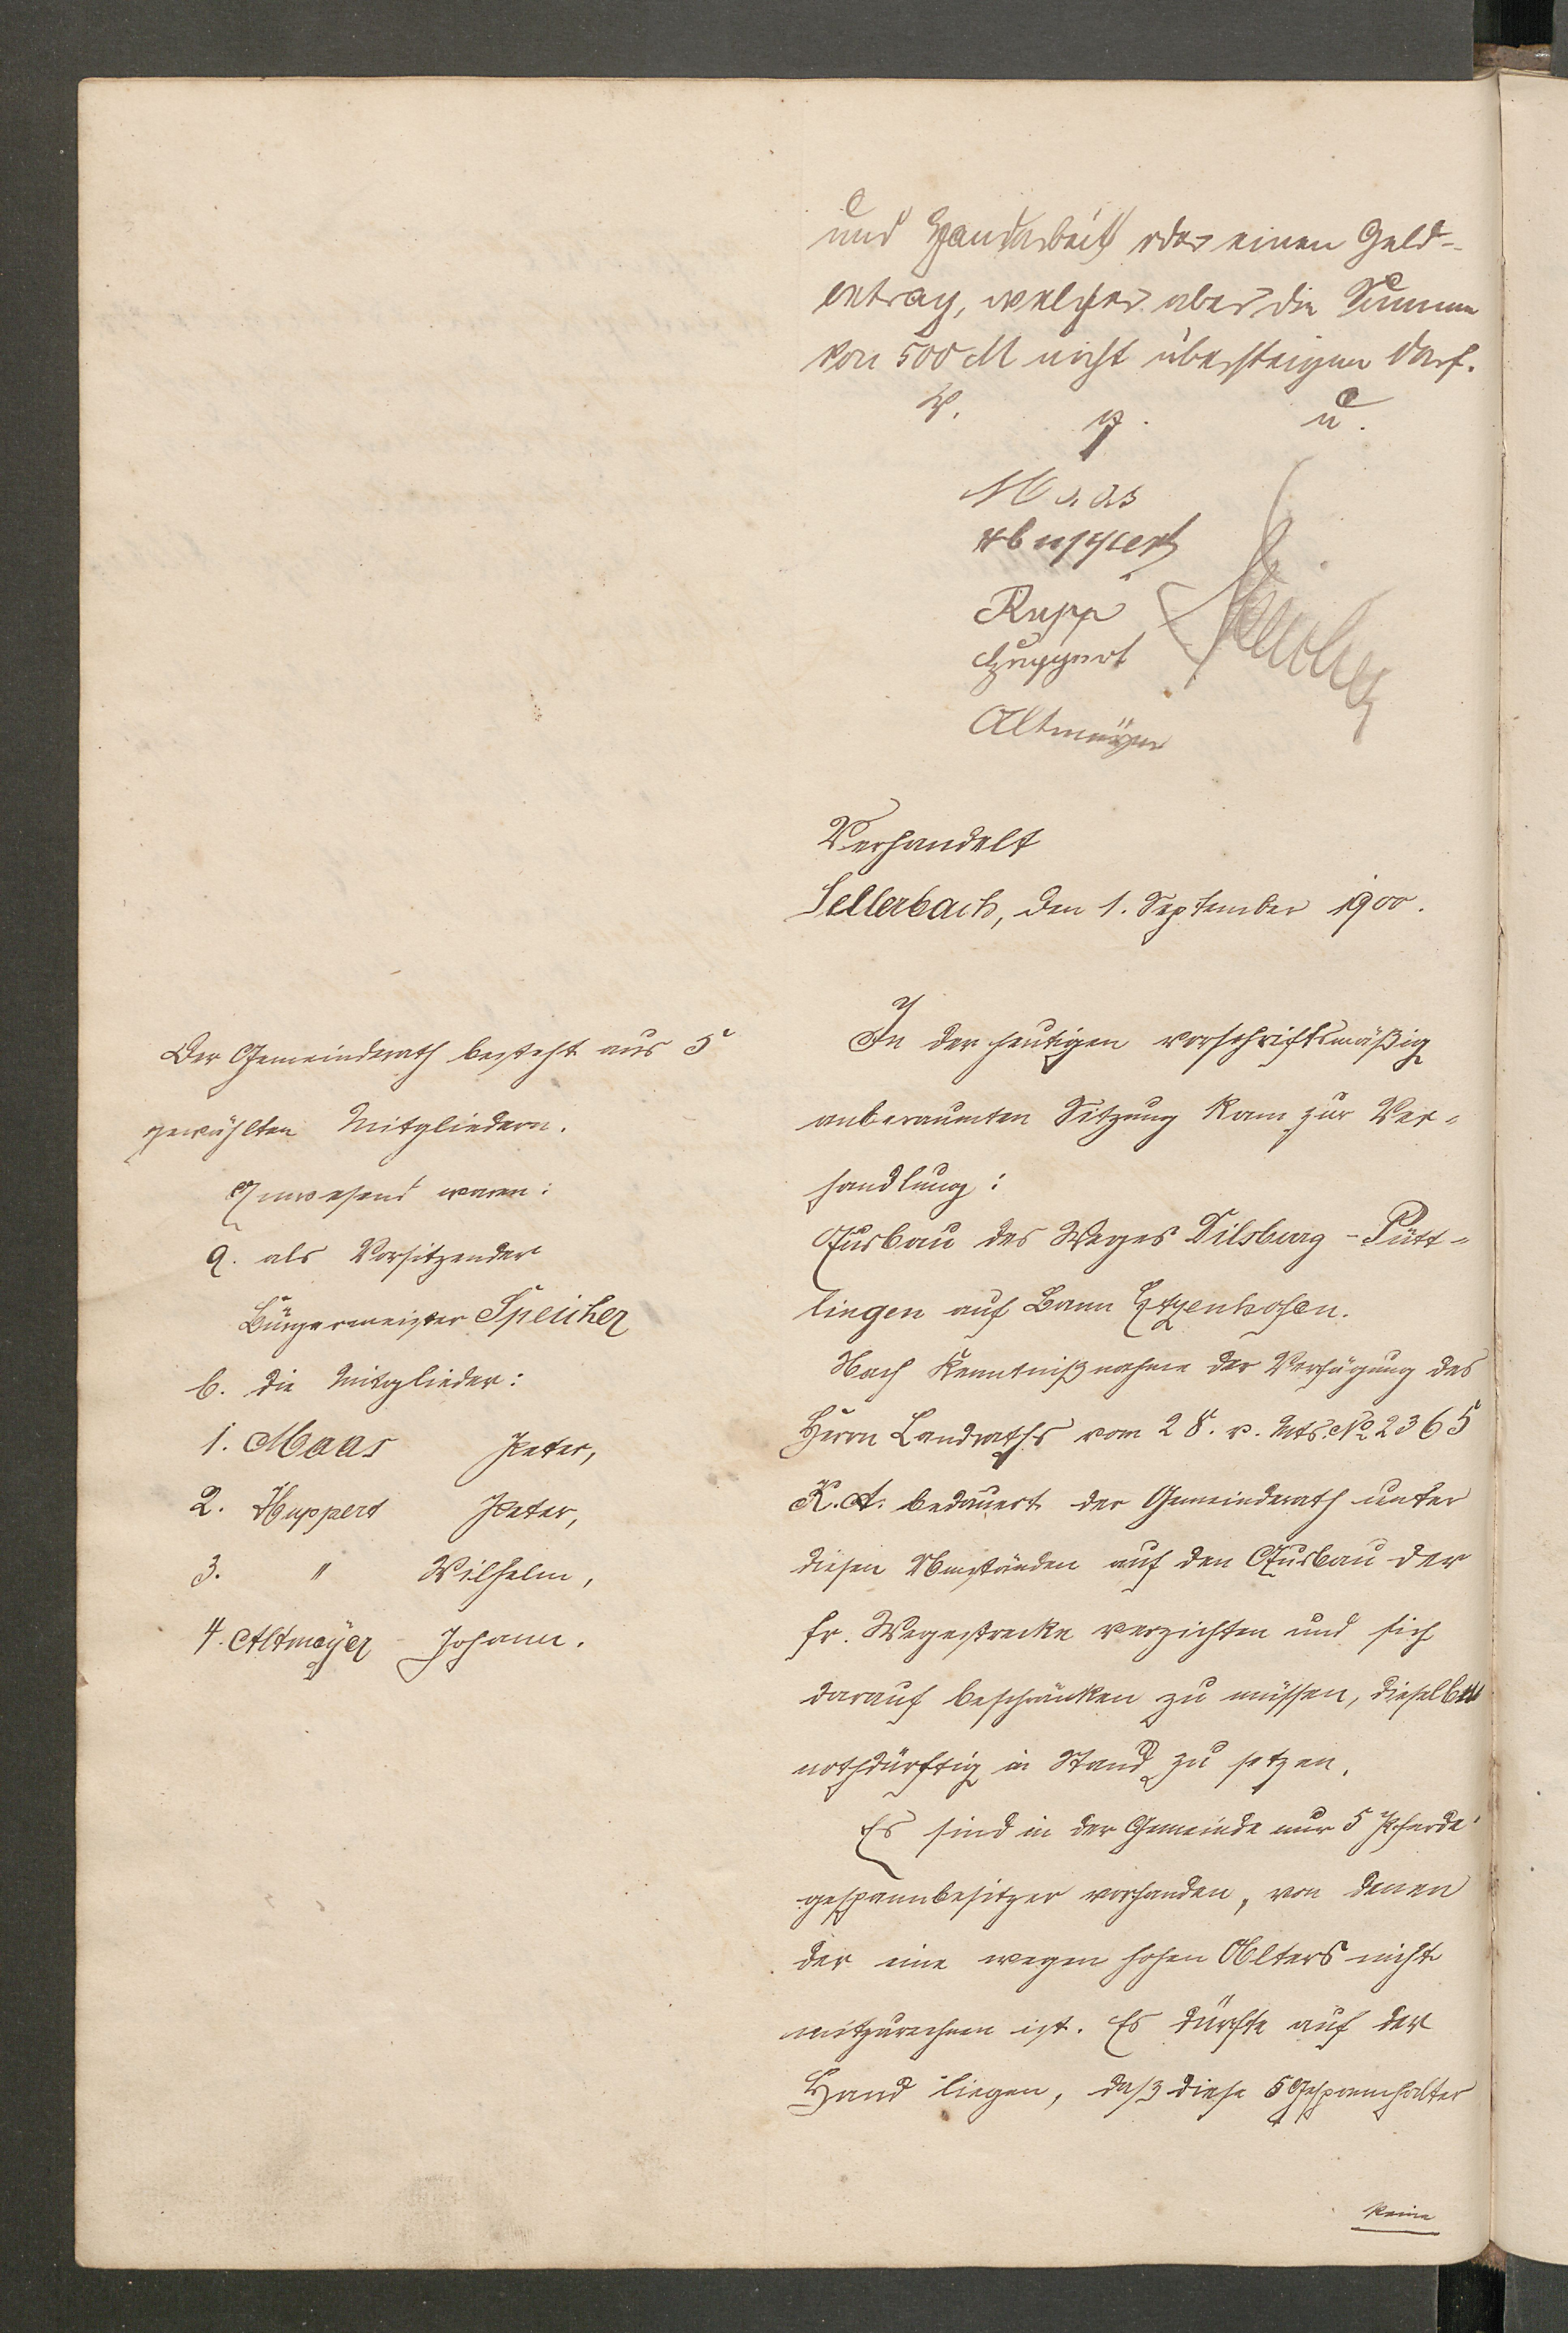 und Handarbeit oder einen Geld-
betrag, welcher aber die Summe
von 500 M nicht übersteigen darf.
v. g. u.
Maas
Huppert
Rupp
Speicher
Huppert
Altmeyer
Verhandelt
Sellerbach, den 1. September 1900.
Der Gemeinderath besteht aus 5
gewählten Mitgliedern.
Anwesend waren:
a. als Vorsitzender
Bürgermeister Speicher
b. die Mitglieder:
1. Maas Peter,
2. Huppert Peter,
3. " Wilhelm,
4. Altmeyer Johann.
In der heutigen vorschriftsmäßig
anberaumten Sitzung kam zur Ver-
handlung:
Ausbau des Weges Dilsburg - Pütt-
lingen auf Bann Etzenhofen.
Nach Kenntnißnahme der Verfügung des
Herrn Landraths vom 28. v. Mts. No 2365
K. A. bedauert der Gemeinderath unter
diesen Umständen auf den Ausbau der
fr. Wegestrecke verzichten und sich
darauf beschränken zu müssen, dieselbe
nothdürftig in Stand zu setzen.
Es sind in der Gemeinde nur 5 Pferde-
gespannbesitzer vorhanden, von denen
der eine wegen hohen Alters nicht
mitzurechnen ist. Es dürfte auf der
Hand liegen, daß diese 5 Gespannhalter
keine